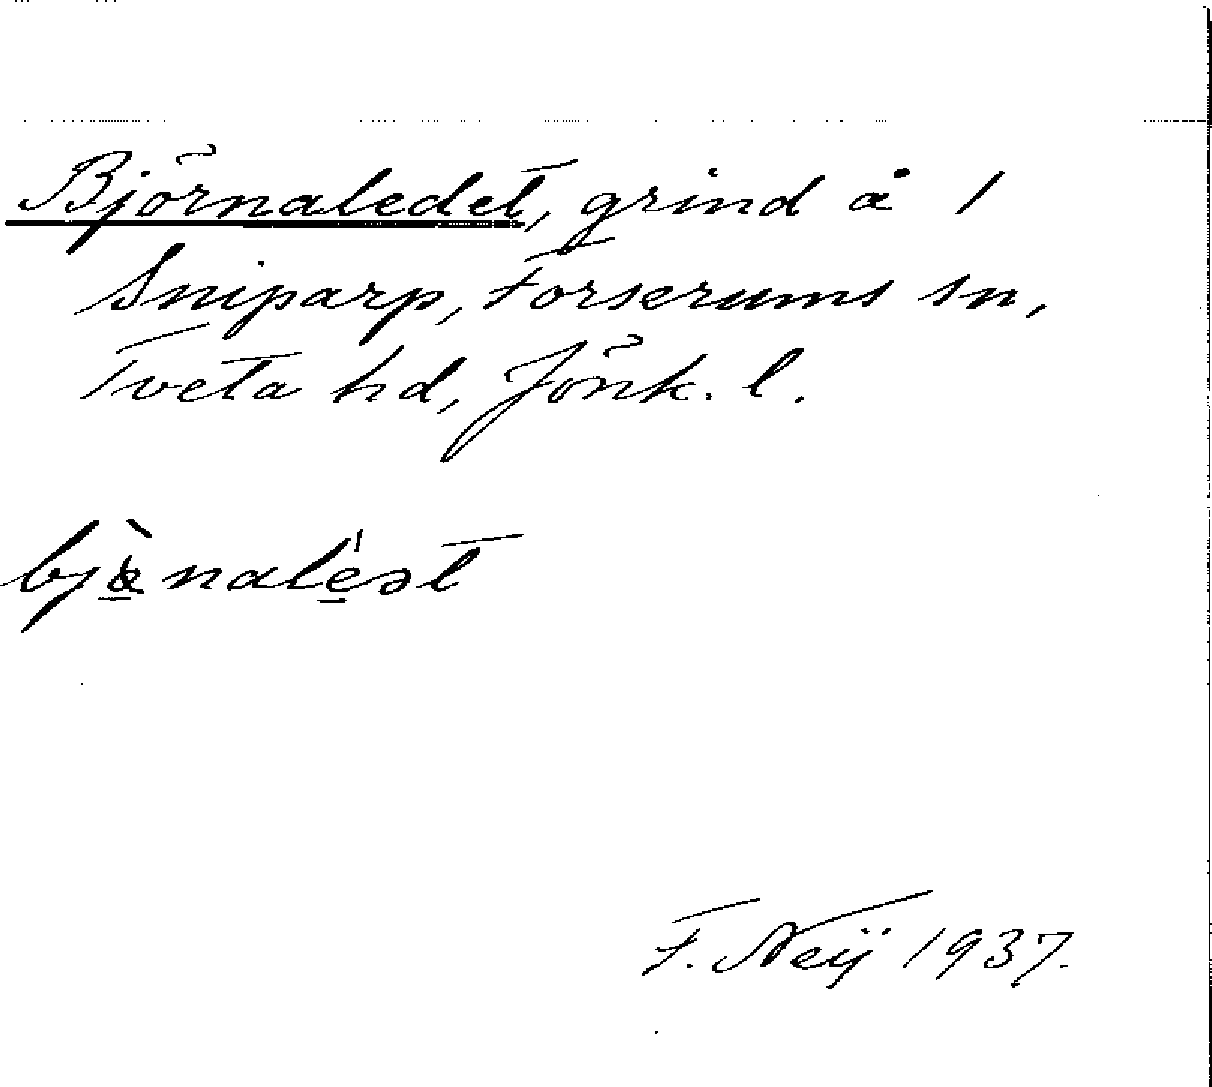 Björnaledet, grind å 1
Sniparp, Forserums sn,
Tveta hd, Jönk. l.
F. Neij 1937.